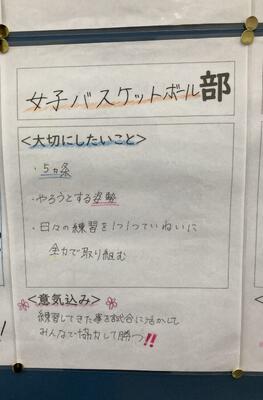 女子バスケットボール部
<大切にしたいこと>
・5ヵ条
・やろうとする姿勢
・日々の練習を1つ1つていねいに
全力で取り組む
<意気込み>
練習してきた事を試合に活かして
みんなで協力して勝つ!!